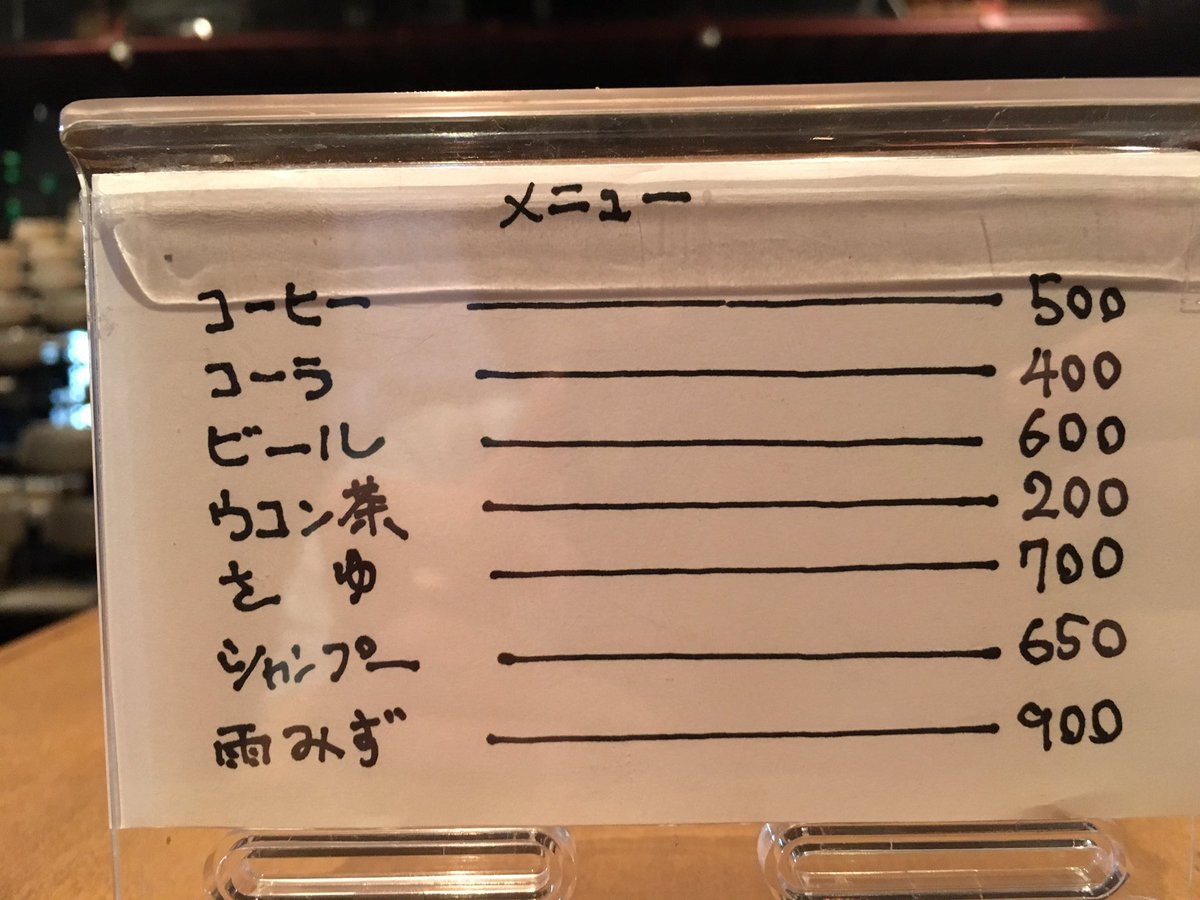 メニュー
コーヒー 500
コーラ 400
ビール 600
ウコン茶 200
さゆ 700
シャンプー 650
雨みず 900